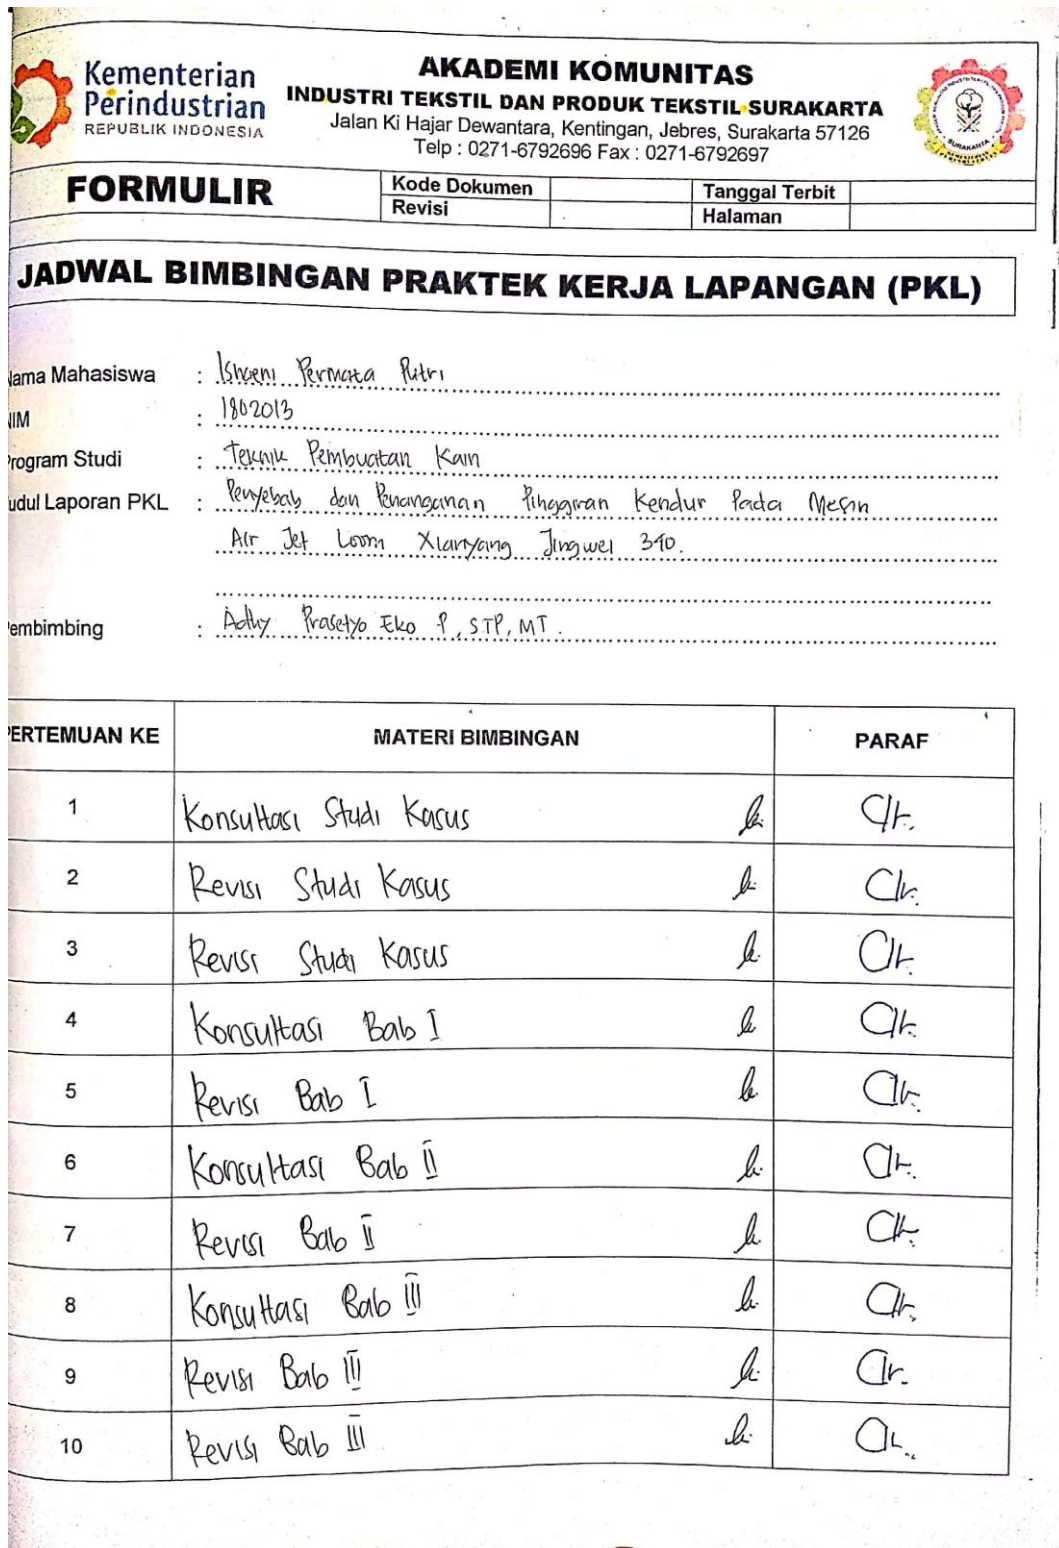 Kementerian
Perindustrian
REPUBLIK INDONESIA
AKADEMI KOMUNITAS
INDUSTRI TEKSTIL DAN PRODUK TEKSTIL SURAKARTA
Jalan Ki Hajar Dewantara, Kentingan, Jebres, Surakarta 57126
Telp : 0271-6792696 Fax : 0271-6792697
FORMULIR
Kode Dokumen Tanggal Terbit
Revisi Halaman
JADWAL BIMBINGAN PRAKTEK KERJA LAPANGAN (PKL)
Nama Mahasiswa : Permata Putri
NIM : 1802013
Program Studi : Teknik Pembuatan Kain
Judul Laporan PKL : Penyebab dan Penanganan Pinggiran Kendur Pada Mesin
Air Jet Loom Xianyang Jingwei 340.
Pembimbing : Adhy Prasetyo Eko P, STP, MT.
PERTEMUAN KE MATERI BIMBINGAN PARAF
1 Konsultasi Studi Kasus
2 Revisi Studi Kasus
3 Revisi Studi Kasus
4 Konsultasi Bab I
5 Revisi Bab I
6 Konsultasi Bab II
7 Revisi Bab II
8 Konsultasi Bab III
9 Revisi Bab III
10 Revisi Bab III